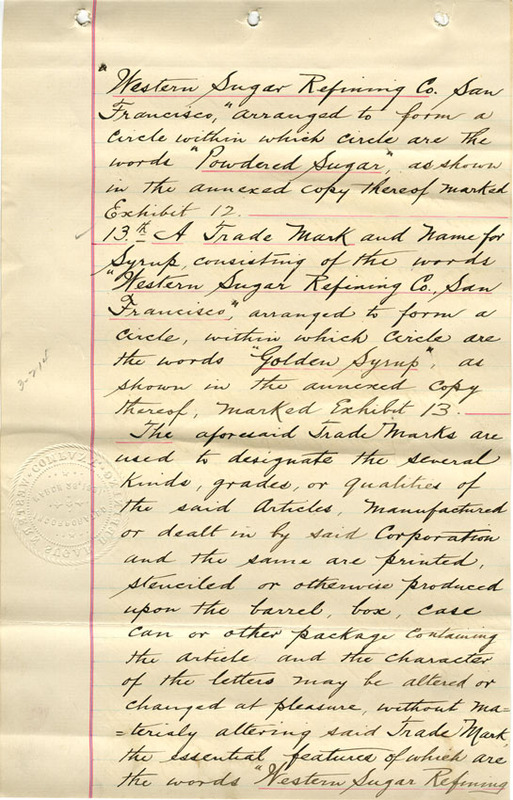 "Western Sugar Refining Co. San
Francisco," arranged to form a
circle within which circle are the
words "Powdered Sugar", as shown
in the annexed copy thereof marked
Exhibit 12.
13.th A Trade Mark and Name for
Syrup, consisting of the words
"Western Sugar Refining Co., San
Francisco", arranged to form a
circle, within which circle are
the words "Golden Syrup", as
shown in the annexed copy
thereof, marked Exhibit 13.
The aforesaid Trade Marks are
used to designate the several
kinds, grades, or qualities of
the said Articles, manufactured
or dealt in by said Corporation
and the same are printed,
stenciled or otherwise produced
upon the barrel, box, case
can or other package containing
the article and the character
of the letters may be altered or
changed at pleasure, without ma=
=terialy altering said Trade Mark,
the essential features of which are
the words "Western Sugar Refining